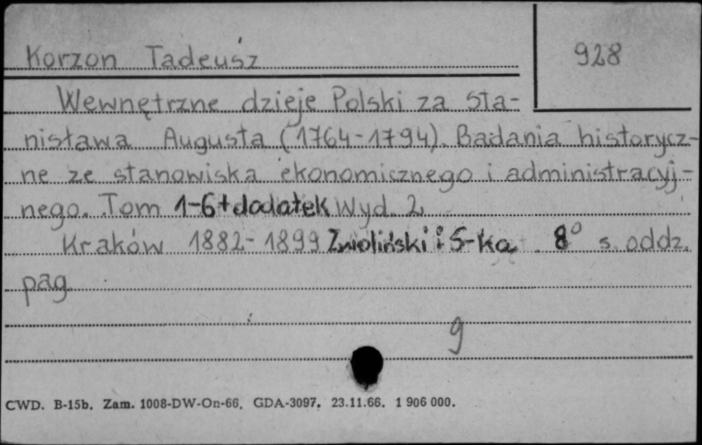 Korzon Tadeusz
928
Wewnętrzne dzieje Polski za Sta-
nisława Augusta (1764-1794). Badania historycz-
ne ze stanowiska ekonomicznego i administracyj-
nego. Tom 1-6+dodatek Wyd. 2
Kraków 1882-1899 Zwoliński i S-ka 8° s. oddz.
pag.
9
CWD. B-15b. Zam. 1008-DW-On-66. GDA-3097. 23.11.66. 1 906 000.